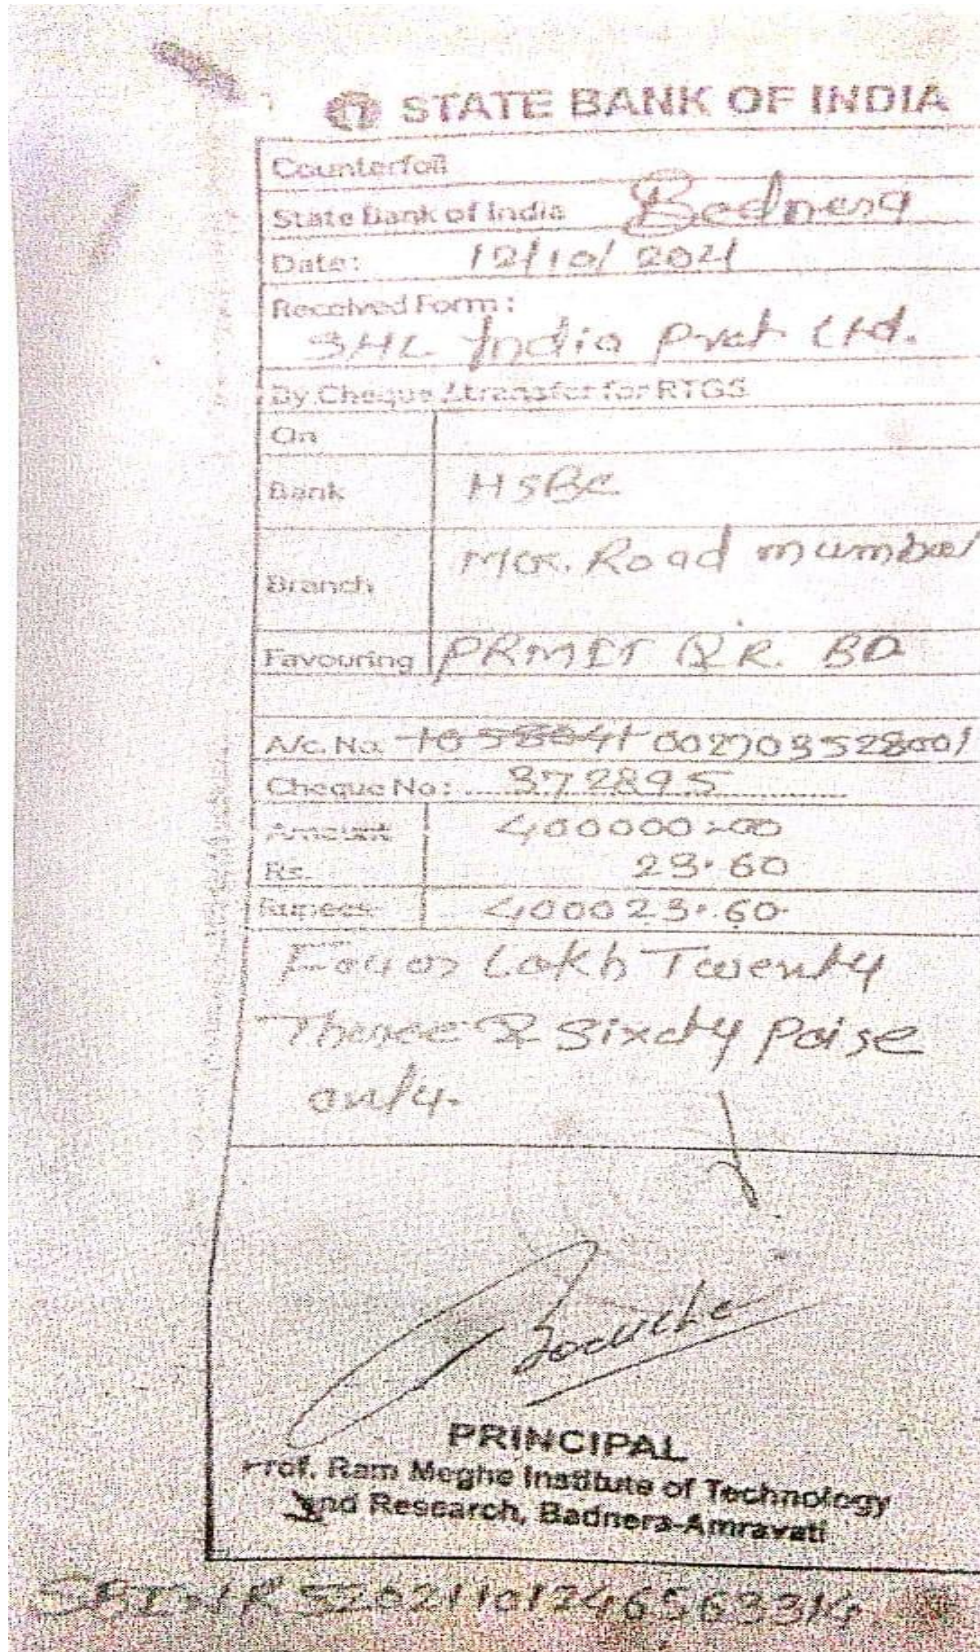 STATE BANK OF INDIA
Counterfoil
State Bank of India Badnera
Date: 12/10/2021
Received Form:
SHL India Pvt Ltd.
By Cheque / transfer for RTGS
On
Bank HSBC
Branch M.G. Road mumbai
Favouring PRMIT &R. BD
A/c. No. 1058041 002703528001
Cheque No: 372895
Amount 400000=00
Rs. 23.60
Rupees 400023.60
Four Lakh Twenty
Three & Sixty Paise
only.
PRINCIPAL
Prof. Ram Meghe Institute of Technology
and Research, Badnera-Amravati